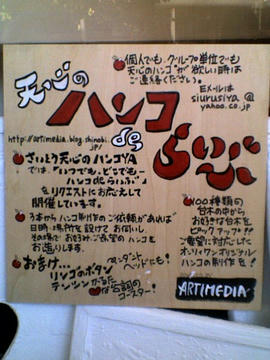 天心の
ハンコ
de
らいぶ
個人でも、グループ単位でも
天心のハンコが欲しい時は
ご連絡ください。
EXールは
siurusiya@
yahoo.co.jp
http://artimedia.blog.shinobi.
jp/
さいとう天心のハンコYA
では、『いつでも、どこでも…
ハンコdeらいぶ』
をリクエストにお応えして
開催しています。
1本からハンコ制作のご依頼があれば
日時、場所を設けてお伺いし
その場でお好みご希望のハンコを
お造りします。
おまけ…
リンゴのボタン
ペンダント
ヘッドにも!
な台詞の
コースター!
100種類の
台木の中から
お好きな台木を
ピックアップ!!
ご要望に対応した
オンリィワンオリジナル
ハンコの制作を!
ARTIMEDIA